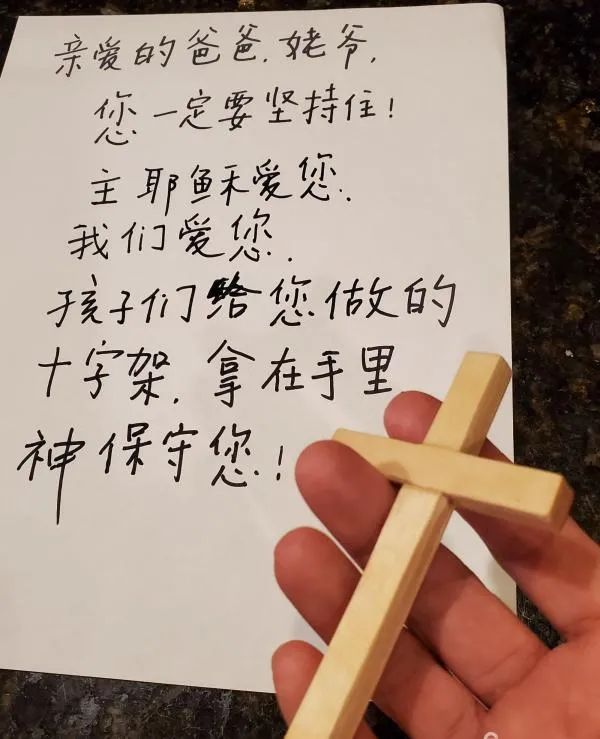 亲爱的爸爸.姥爷,
您一定要坚持住!
主耶稣爱您.
我们爱您.
孩子们给您做的
十字架.拿在手里
神保守您!